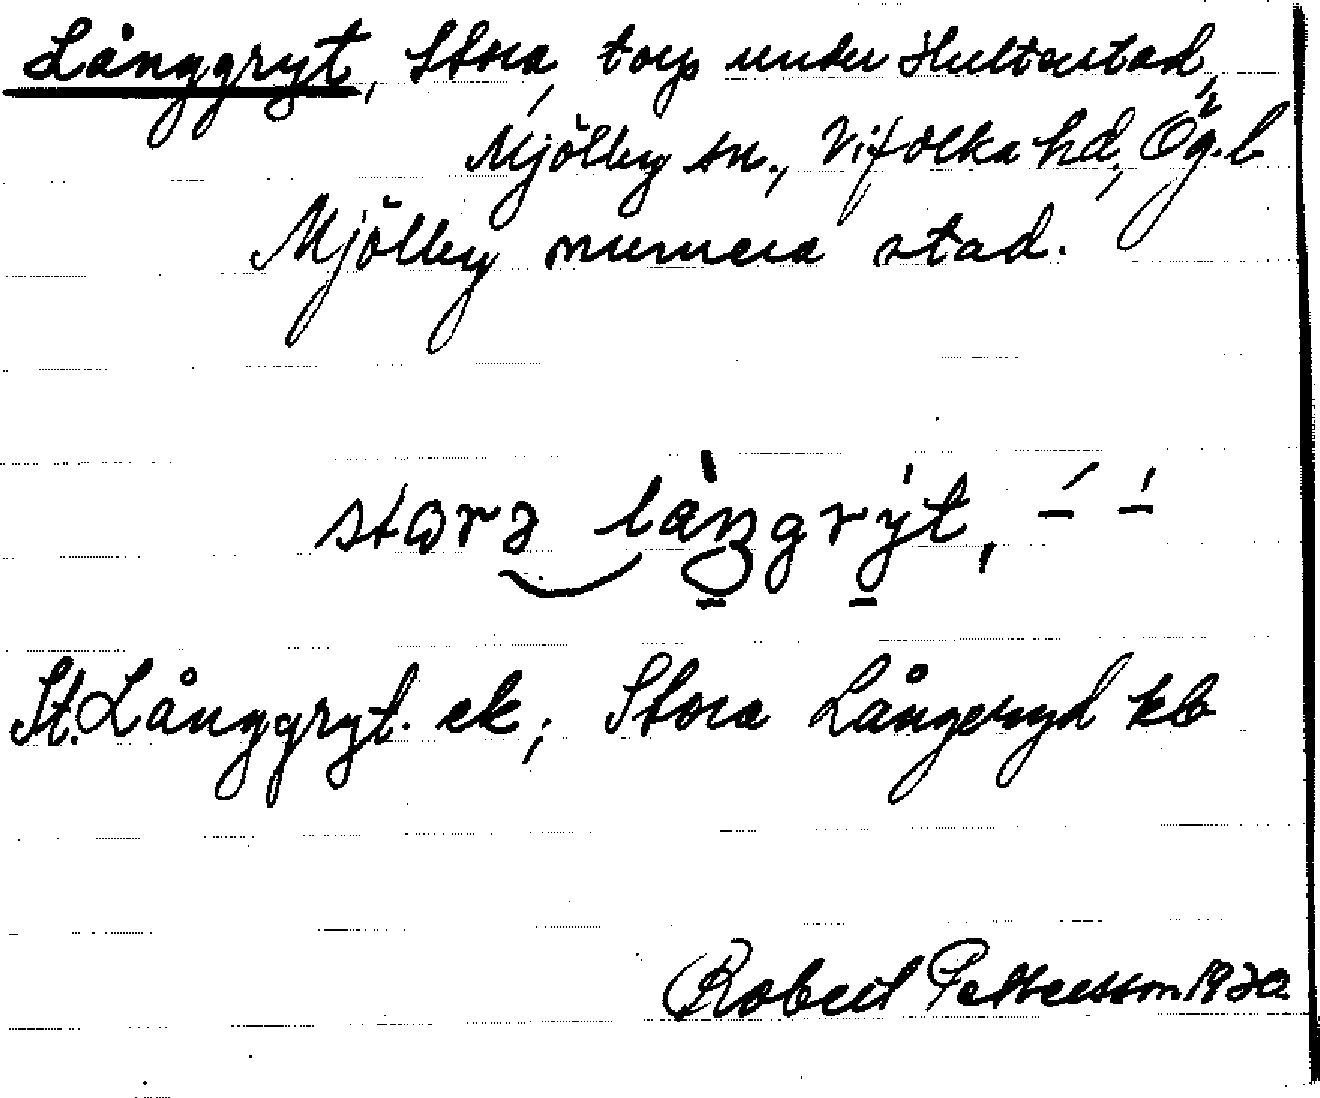 Långgryt, Stora, torp under Hultastad,
Mjölby sn., Vifolka hd, Ög. l
Mjölby numera stad.
stɷrɘ låŋgrỳt,
St. Långgryt. ek; Stora Långeryd kb
Robert Pettersson 1930